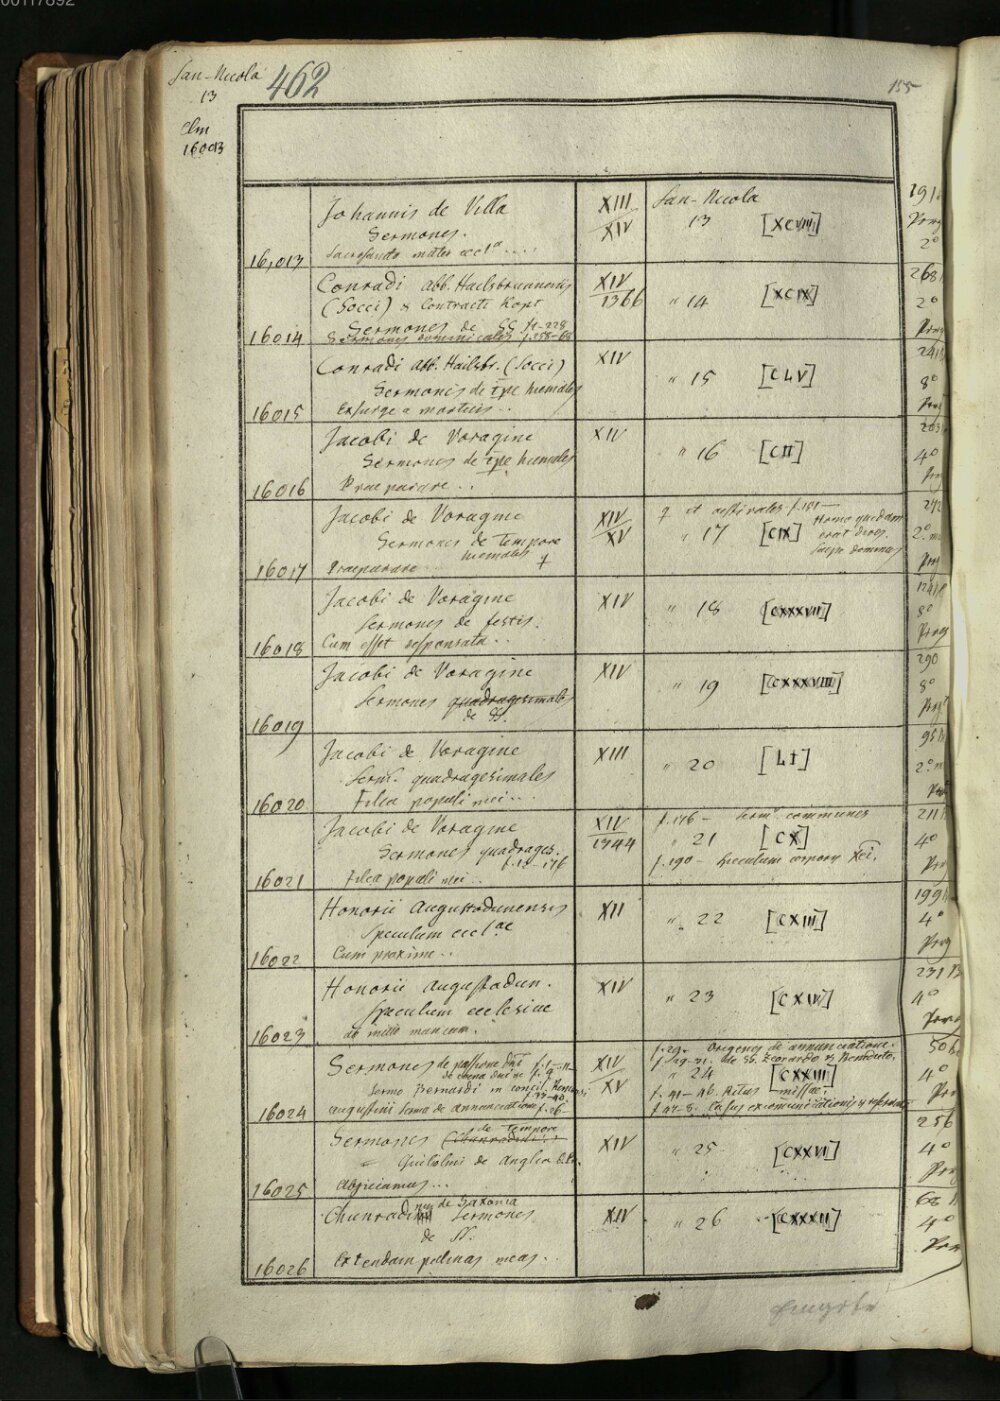 00117892
San-Nicola
13
462
155
Clm
16003
16,013 Johannis de Villa XIII San-Nicola 291
Sermones. XIV 13 [XCVIII] Perg
Sacrosancta mater eccla .... 2°
16014 Conradi abb. Hailsbrunnensis XIV 268
(Socci) & Contracti Kopt 1366 " 14 [XCIX] 2°
Sermones de SS f. 1-228 Perg
Sermones dominicales f. 258-68
16015 Conradi abb. Hailsbr. (Socci) XIV 241
Sermones de tpe hiemales " 15 [CLV] 8°
Exsurge a mortuis .. Perg
16016 Jacobi de Voragine XIV 203
Sermones de tpe hiemales " 16 [CII] 4°
Praeparare .. Perg
16017 Jacobi de Voragine XIV ♀ et aestivales f. 151— 272
Sermones de tempore XV " 17 [CIX] Homo quidam erat dives. 2°
hiemales ♀
Praeparare saepe dominus Perg
16018 Jacobi de Voragine XIV " 18 [CXXXVII] 124
Sermones de festis. 8°
Cum esset desponsata .. Perg
16019 Jacobi de Voragine XIV 290
Sermones quadragesimales " 19 [CXXXVIII] 8°
de SS. Perg
16020 Jacobi de Voragine XIII 95
Serm. quadragesimales " 20 [LI] 2°
Filia populi mei ...
16021 Jacobi de Voragine XIV f. 176 — serm. communes 211
Sermones quadrages. 1344 " 21 [CX] 4°
f. 12-176 f. 190 — speculum corporis Xti.
Filia populi mei .. Perg
16022 Honorii Augustodunensis XII 199
Speculum eccl ae " 22 [CXIII] 4°
Cum proxime .. Perg
16023 Honorii Augustodun. XIV 231
Speculum ecclesiae " 23 [CXIV] 4°
ad missi mancum. Perg
16024 Sermones de passione dni f. 1-11 XIV f. 29- Origenes de annunciatione. 50
de coena dni f. 9 XV f. 29-31. de SS. Zeorardo & Benedicto.
Sermo Bernardi in concil. Remensi " 24 [CXXIII] 4°
f. 37-40. f. 41-46. Ritus missae.
Augustini sermo de annunciatione f. 26- f. 47-8. Casus excommunicationis Perg
16025 Sermones de tempore XIV 256
Guilelmi de Anglia " 25 [CXXVI] 4°
Abjiciamus ... Perg
16026 Chunradi de Saxonia XIV 68
Sermones " 26 [CXXXII] 4°
de SS. Perg
Extendam palmas meas ...